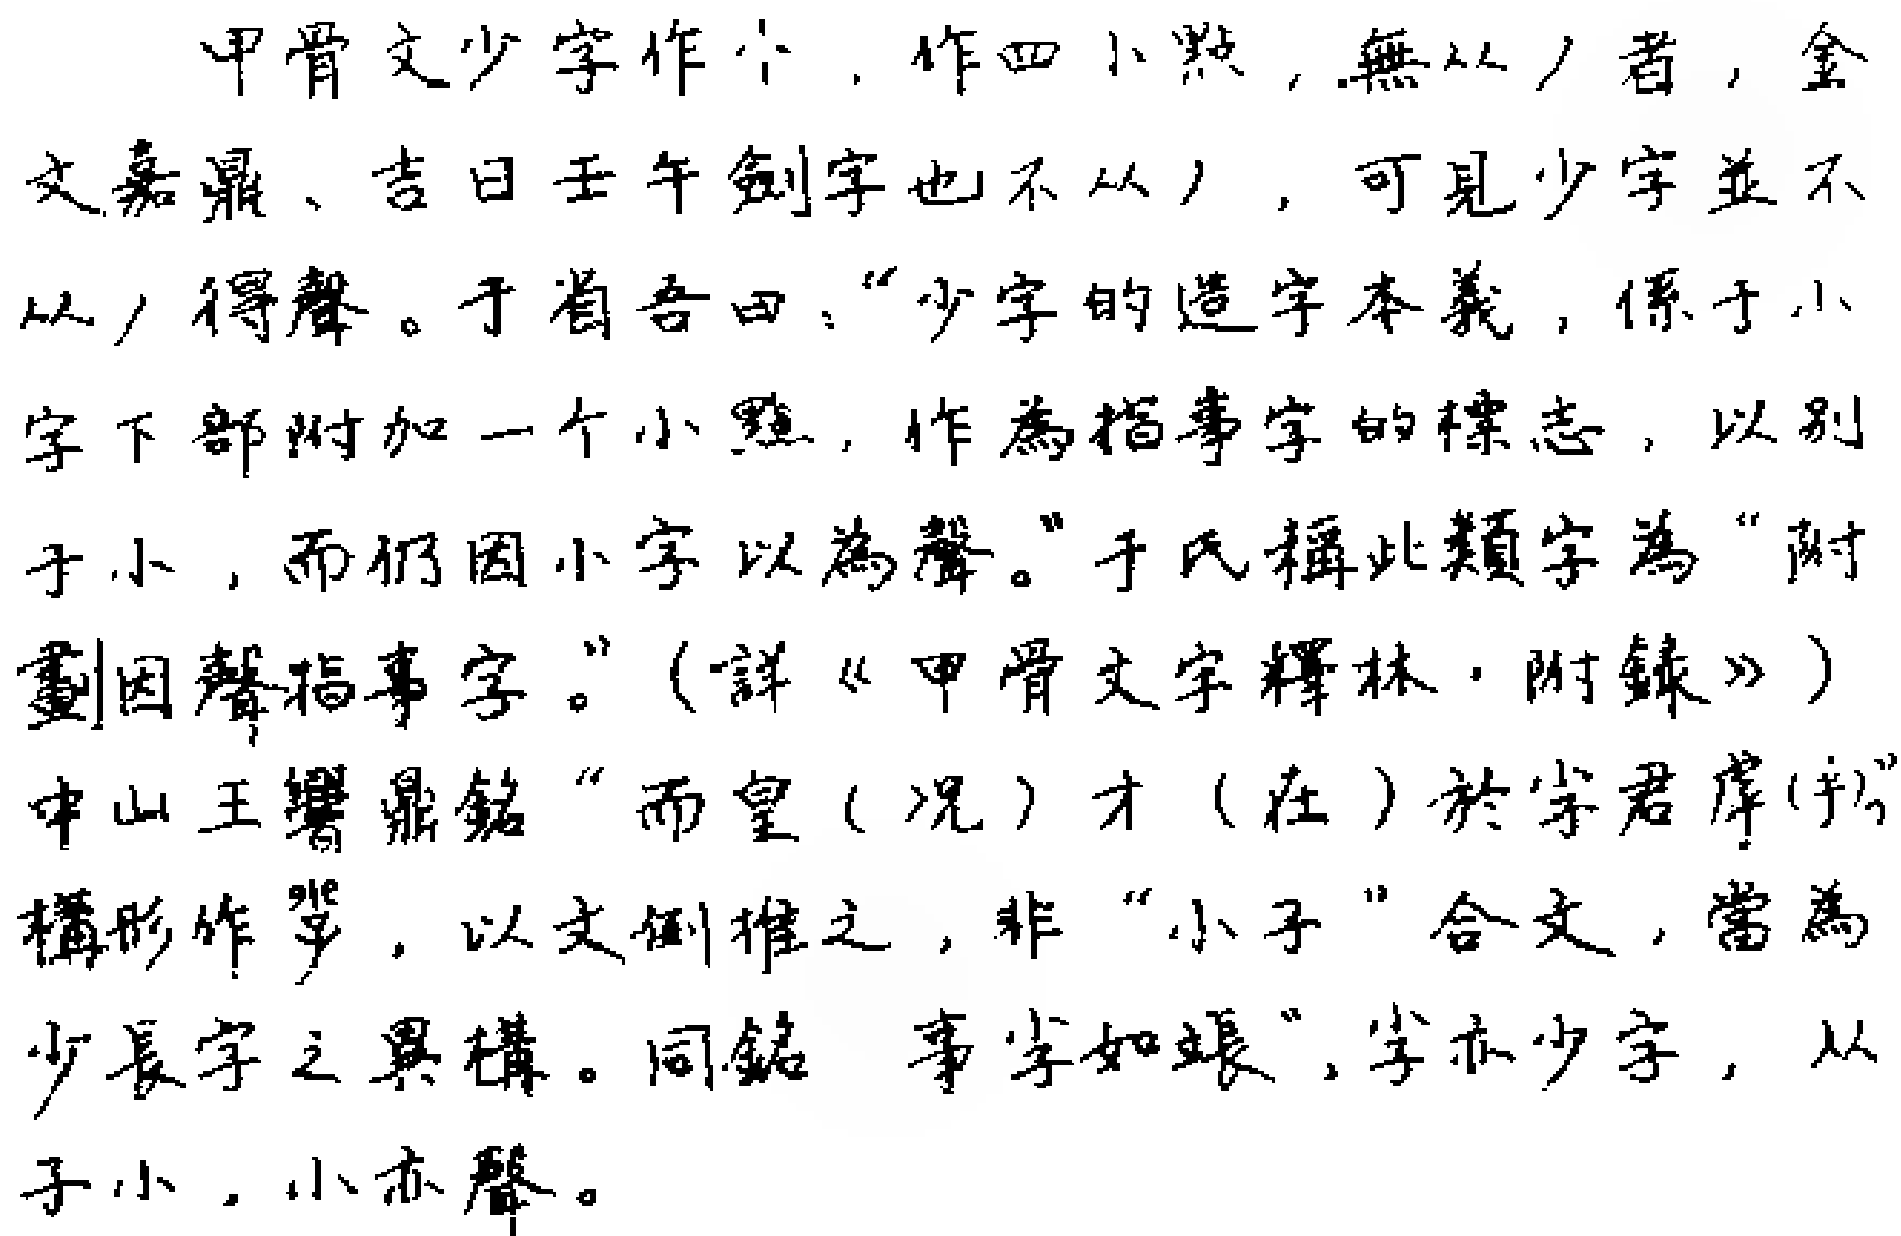 甲骨文少字作，作四小點，無从丿者，金
文嘉鼎、吉日壬午劍字也不从丿，可見少字並不
从丿得聲。于省吾曰：“少字的造字本義，係于小
字下部附加一个小點，作為指事字的標志，以別
于小，而仍因小字以為聲。”于氏稱此類字為“附
劃因聲指事字。”(詳《甲骨文字釋林·附錄》)
中山王鼎銘“而皇(况)才(在)於㝊君虖(乎)”，
構形作，以文例推之，非“小子”合文，當為
少長字之異構。同銘 事㝊如張”，㝊亦少字，从
子小，小亦聲。